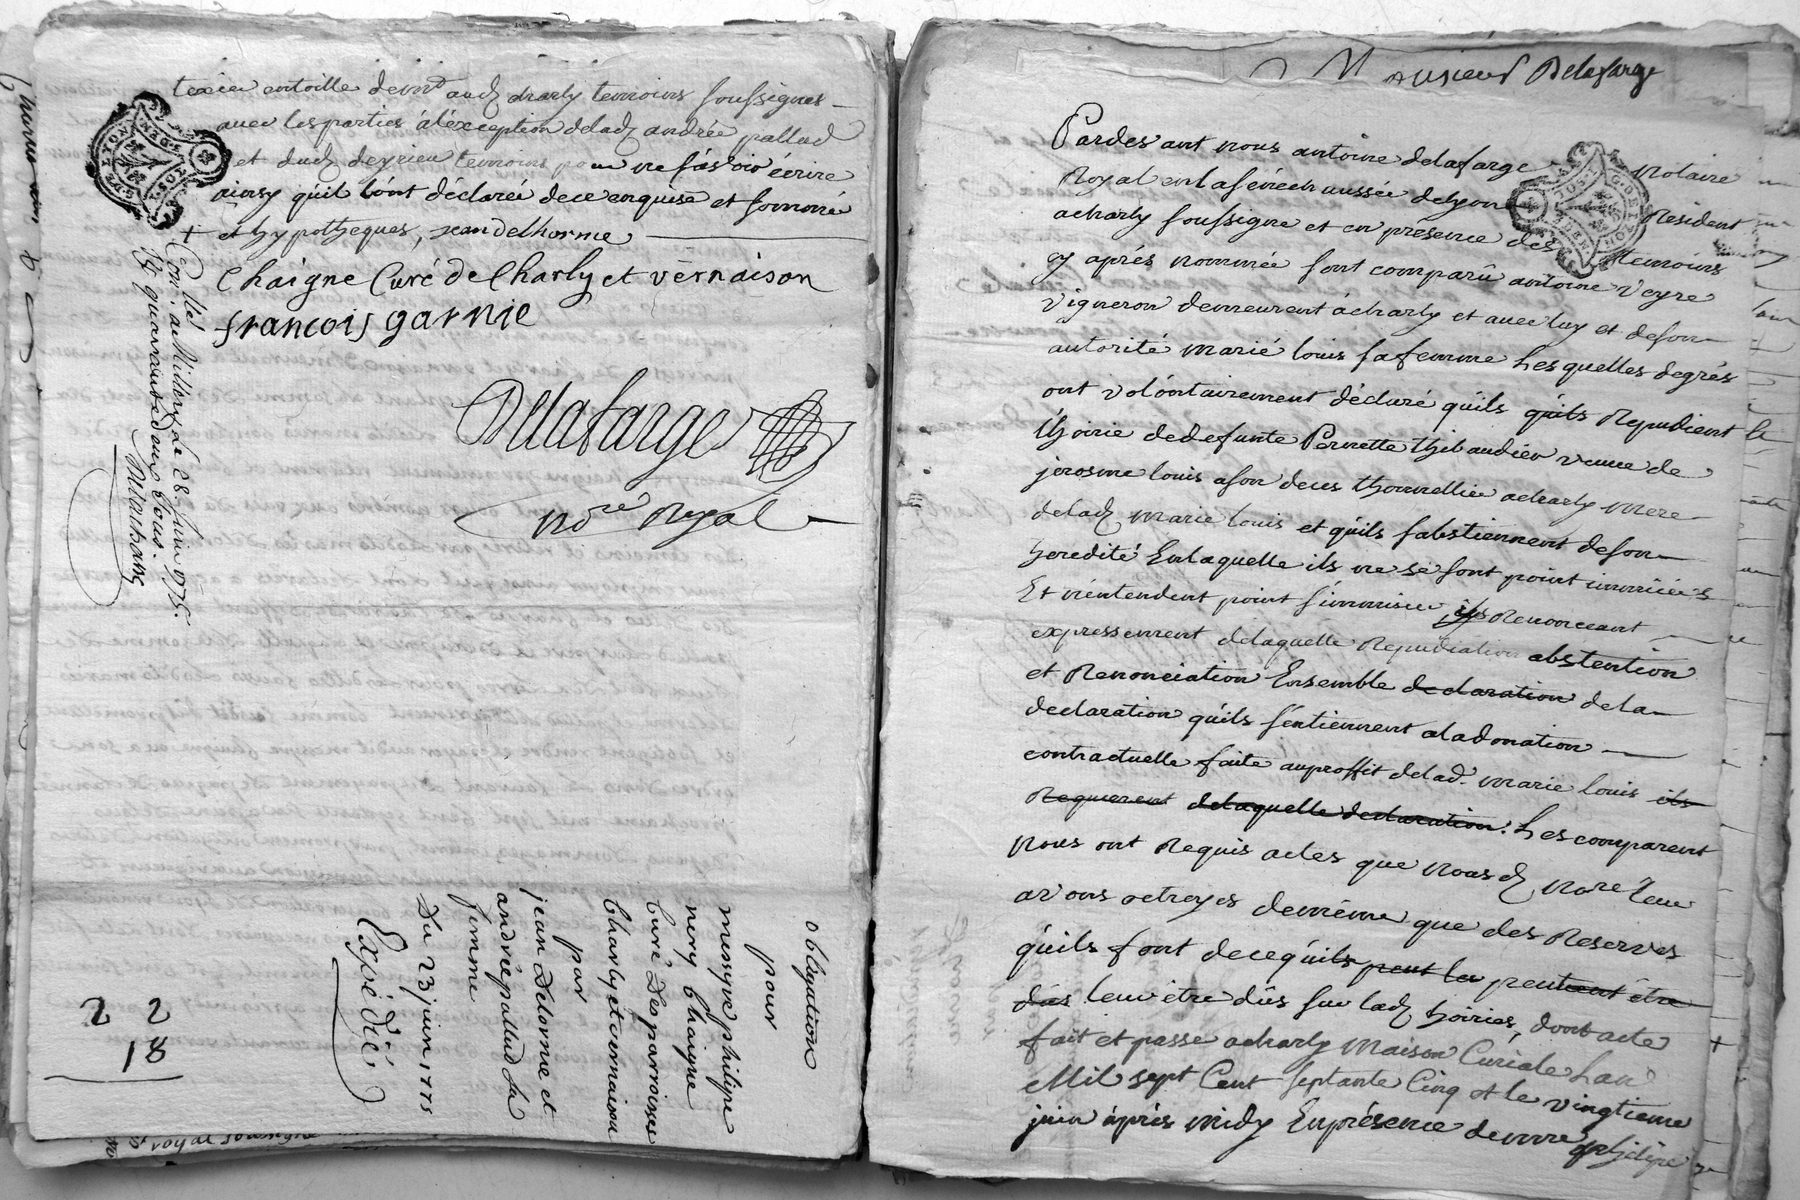 antoille de md audt charly temoins soussignés
avec les parties à l'éxception deladt andrée pallud
et dudt deyrieu temoins pour ne sçavoir écrire
ainsy qu'il l'ont déclaréé de ce enquise et sommé
+ et hypotheques, jean delhorme
Chaigne Curé de Charly et vernaison
francois garnie
Delafarge
nore Royal
Conllé a Millery Le 28. Juin 1775.
quarente deux sous.
obligation
pour
messyre philipre
nery Chaigne
Curé des parroisses
Charly et vernaison
par
jean Delorme et
andrée pallud sa
femme
Du 23 juin 1775
Expédiée
2 2
18
royal soussigné
Monsieur Delafarge
Pardevant nous antoine delafarge Notaire
Royal en la sénéchaussée de lyon Resident
acharly soussigne et en présence des temoins
cy aprés nommée sont comparu antoine veyre
vigneron demeurent àcharly et avec luy et deson
autorité marié louis sa femme Lesquelles degrés
ont volontairement déclaré quils quils Repudient
lhoirie dedefunte Pernette thibaudier veuve de
jerosme louis ason deces thonnellier acharly mere
deladt marie louis et quils sabstiennent deson
heredité Enlaquelle ils ne se sont point immicéés
Et n'éntendent point s'immiscer ils Renonceant
expressement delaquelle Repudiation abstention
et Renonciation Ensemble declaration dela
declaration quils s'entiennent aladonation
contractuelle faite auproffit deladt. marie louis ils
Requierent delaquelle declaration. Les comparent
nous ont Requis actes que nous dt nore leur
avons octroyés demême que des Reserves
quils font decequils peut leu peuvent étre
dús leur étre dûs sur ladt hoiries, dont acte +
fait et passé acharly maison Curiale Lan
Mil sept Cent septante Cinq et le vingtieme
juin àprés midy Enprésence demre philipre